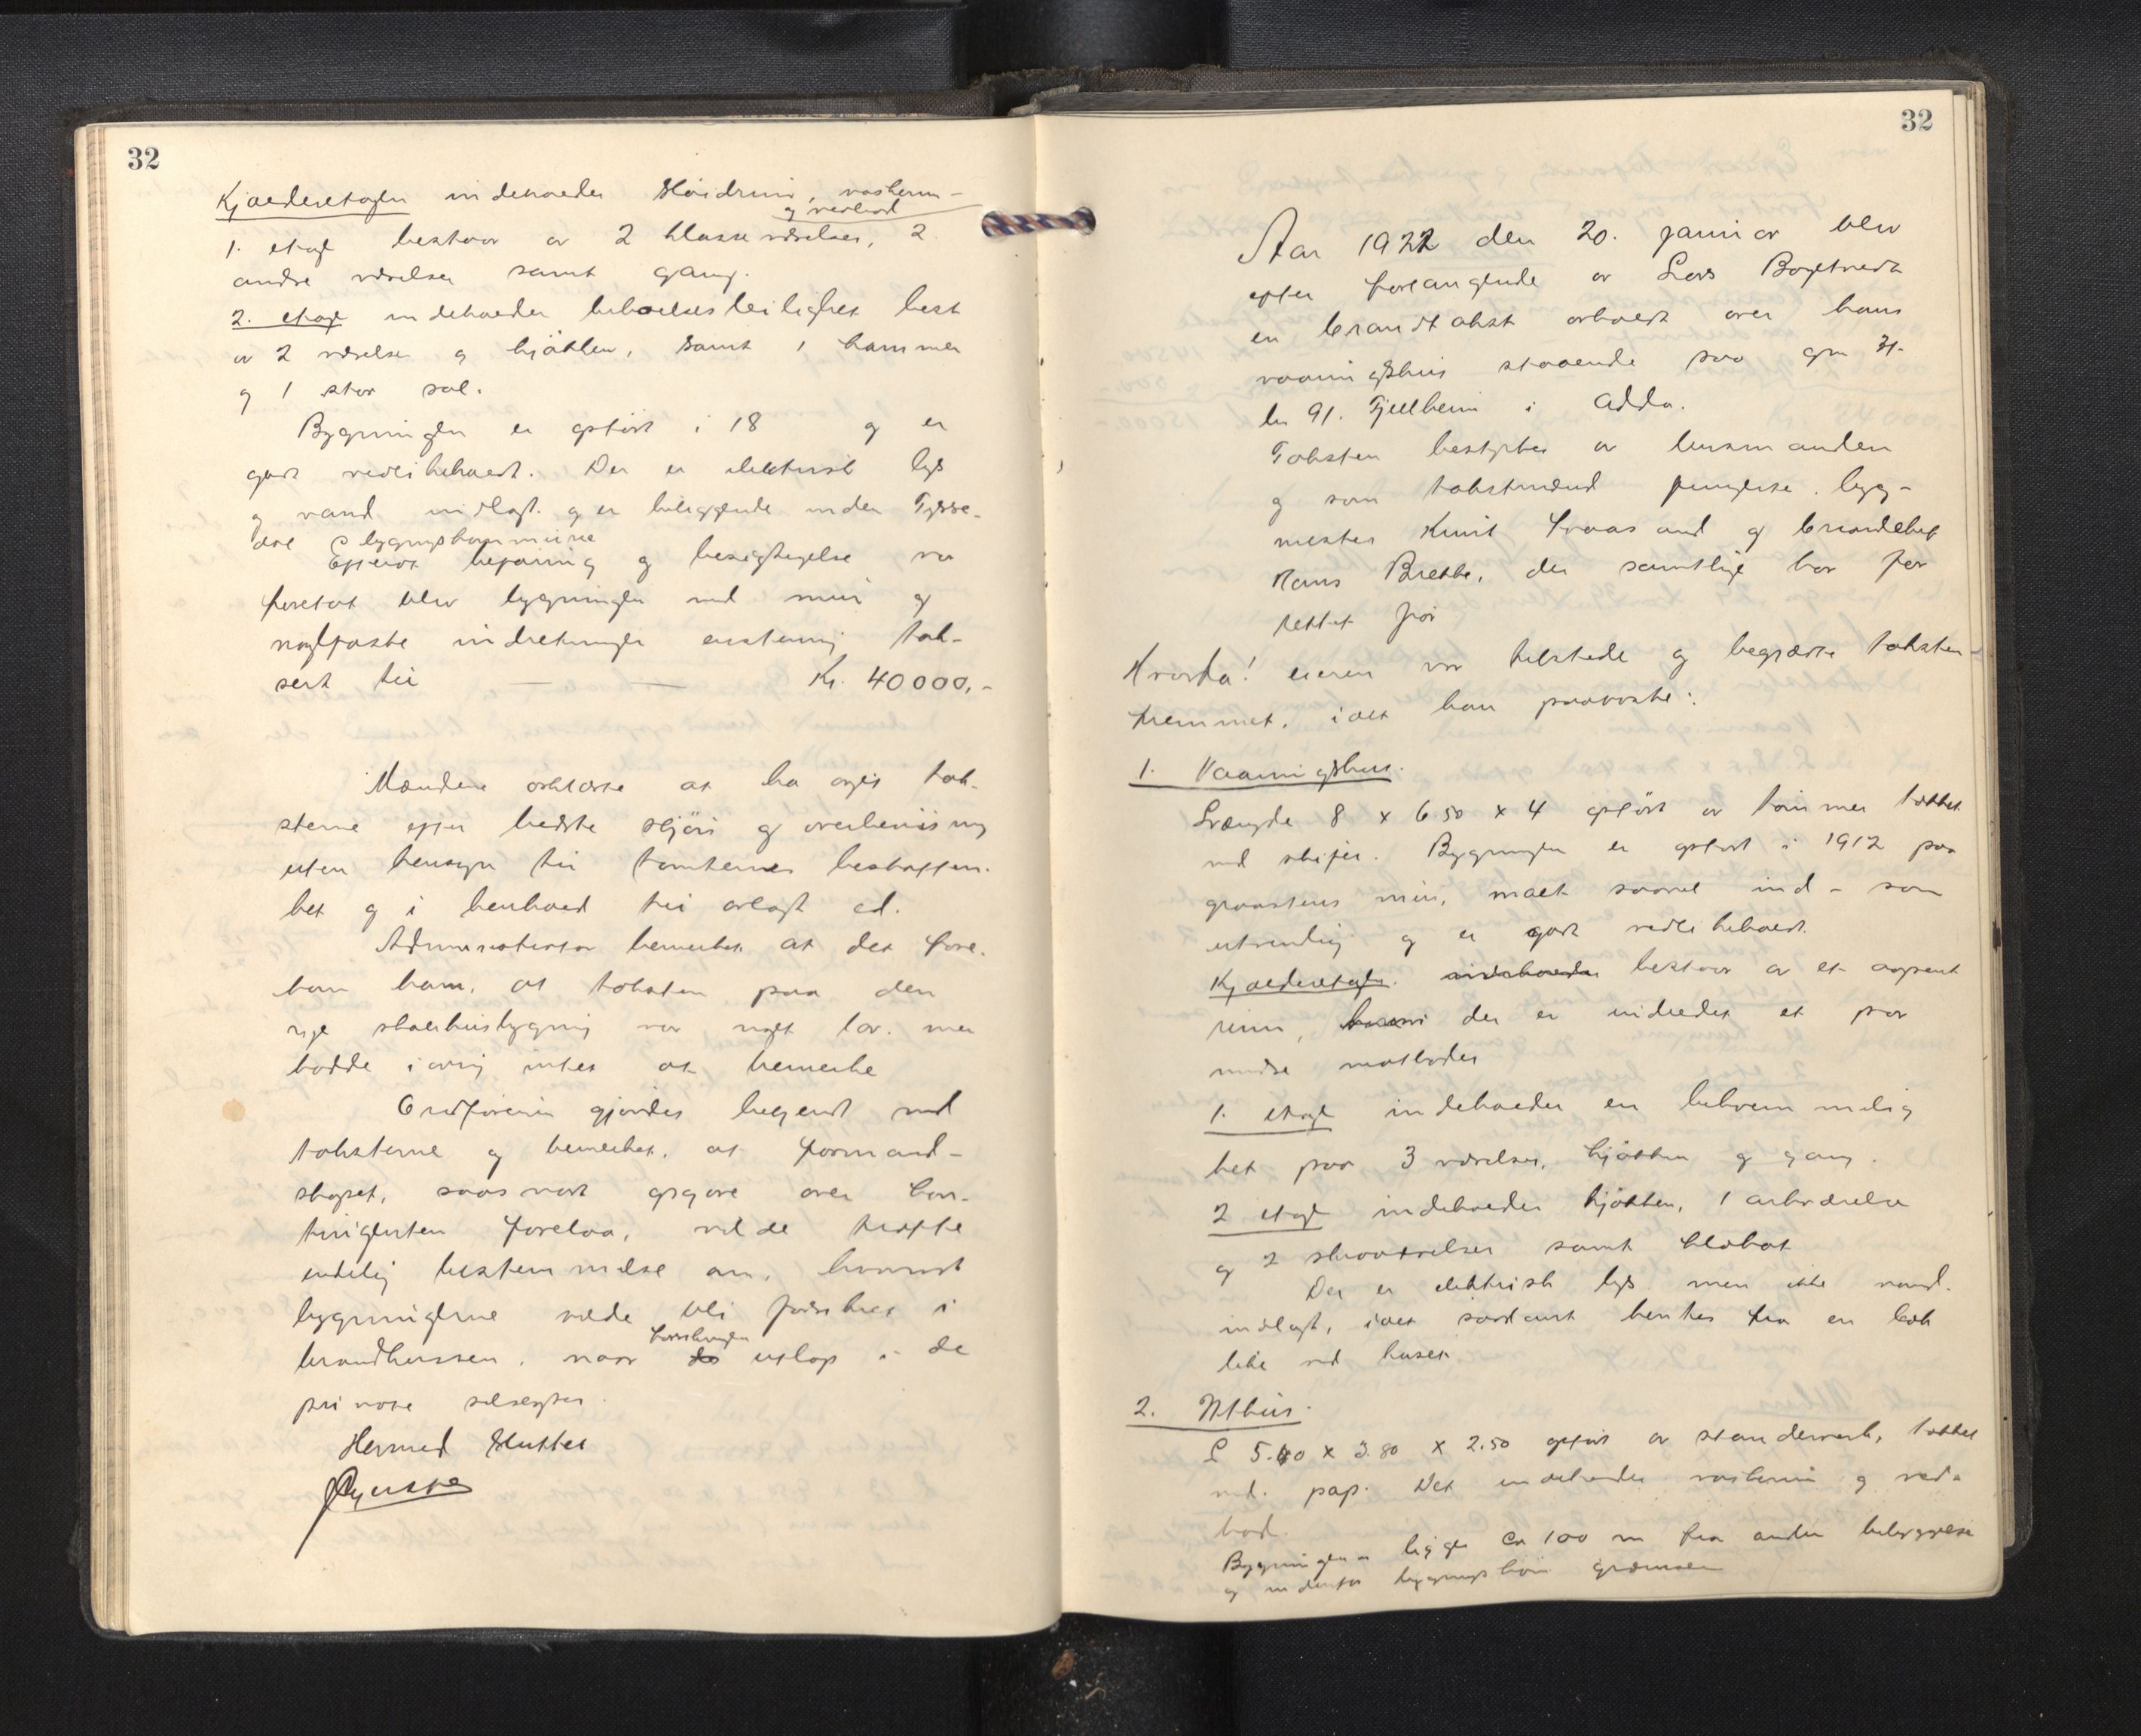 32
Kjælderetagen indeholder sløidrum, vaskerum
og vedbod
1. etage bestaar av 2 klasseværelser, 2
andre værelser samt gang.
2. etage indeholder beboelsesleilighet best
av 2 værelser og kjøkken, samt 1 kammer
og 1 stor sal.
Bygningen er opført i 18 og er
godt vedlikeholdt. Der er elektrisk lys
og vand indlagt og er beliggende inden Tysse-
dal bygningskommune
Efterat befaring og besigtigelse var
foretat blev bygningen med mur og
naglfaste indretninger enstemmig tak-
sert til — — Kr. 40000,-
Mændene erklærte at ha avgit tak-
sterne efter bedste skjøn og overbevisning
uten hensyn til tomternes beskaffen-
het og i henhold til avlagt ed.
Administrator bemerket at det fore-
kom ham, at taksten paa den
nye skolehusbygning var noget lav. men
hadde iøvrig intet at bemerke
Ordføreren gjordes bekjendt med
taksterne og bemerket, at formand-
skapet, saasnart opgjøre over kon-
tingenten forelaa, vilde træffe
endelig bestemmelse om, hvorvidt
bygningerne vilde bli forsikret i
brandkassen, naar forsikringen utløp i de
private selskaper.
Hermed sluttet
32
Aar 1922 den 20. januar blev
efter forlangende av Lars Bogetvedt
en brandtakst avholdt over hans
vaaningshus staaende paa gm 31-
br 91. Fjellheim i Odda.
Taksten bestyrtes av lensmanden
og som takstmænd fungerte bygg-
mester Knut Traasand og
Hans Brekke, der samtlige har for
rettet før
Hvorda! eieren var tilstede og begjærte taksten
fremmet, idet han paaviste:
1. Vaaningshus.
Længde 8 x 6.50 x 4 opført av tømmer tækket
med skifer. Bygningen er opført i 1912 paa
graastens mur, malt saavel ind- som
utvendig og er godt vedlikeholdt.
Kjælderetagen. indeholder bestaar av et aapent
rum, der er indredet et par
mindre matboder
1. etage indeholder en bekvemmelig
het paa 3 værelser, kjøkken og gang.
2 etage indeholder kjøkken, 1
og 2 skraaværelser samt klosset
Der er elektrisk lys men ikke vand.
indlagt, idet saadant hentes fra en bæk
like ved huset
2. Uthus.
L 5.40 x 3.80 x 2.50 opført av stenderverk, tækket
med pap. Det indeholder vaskerum og ved-
bod.
Bygningene ligger ca 100 m fra anden bebyggelse
og indenfor bygningskom grænsen